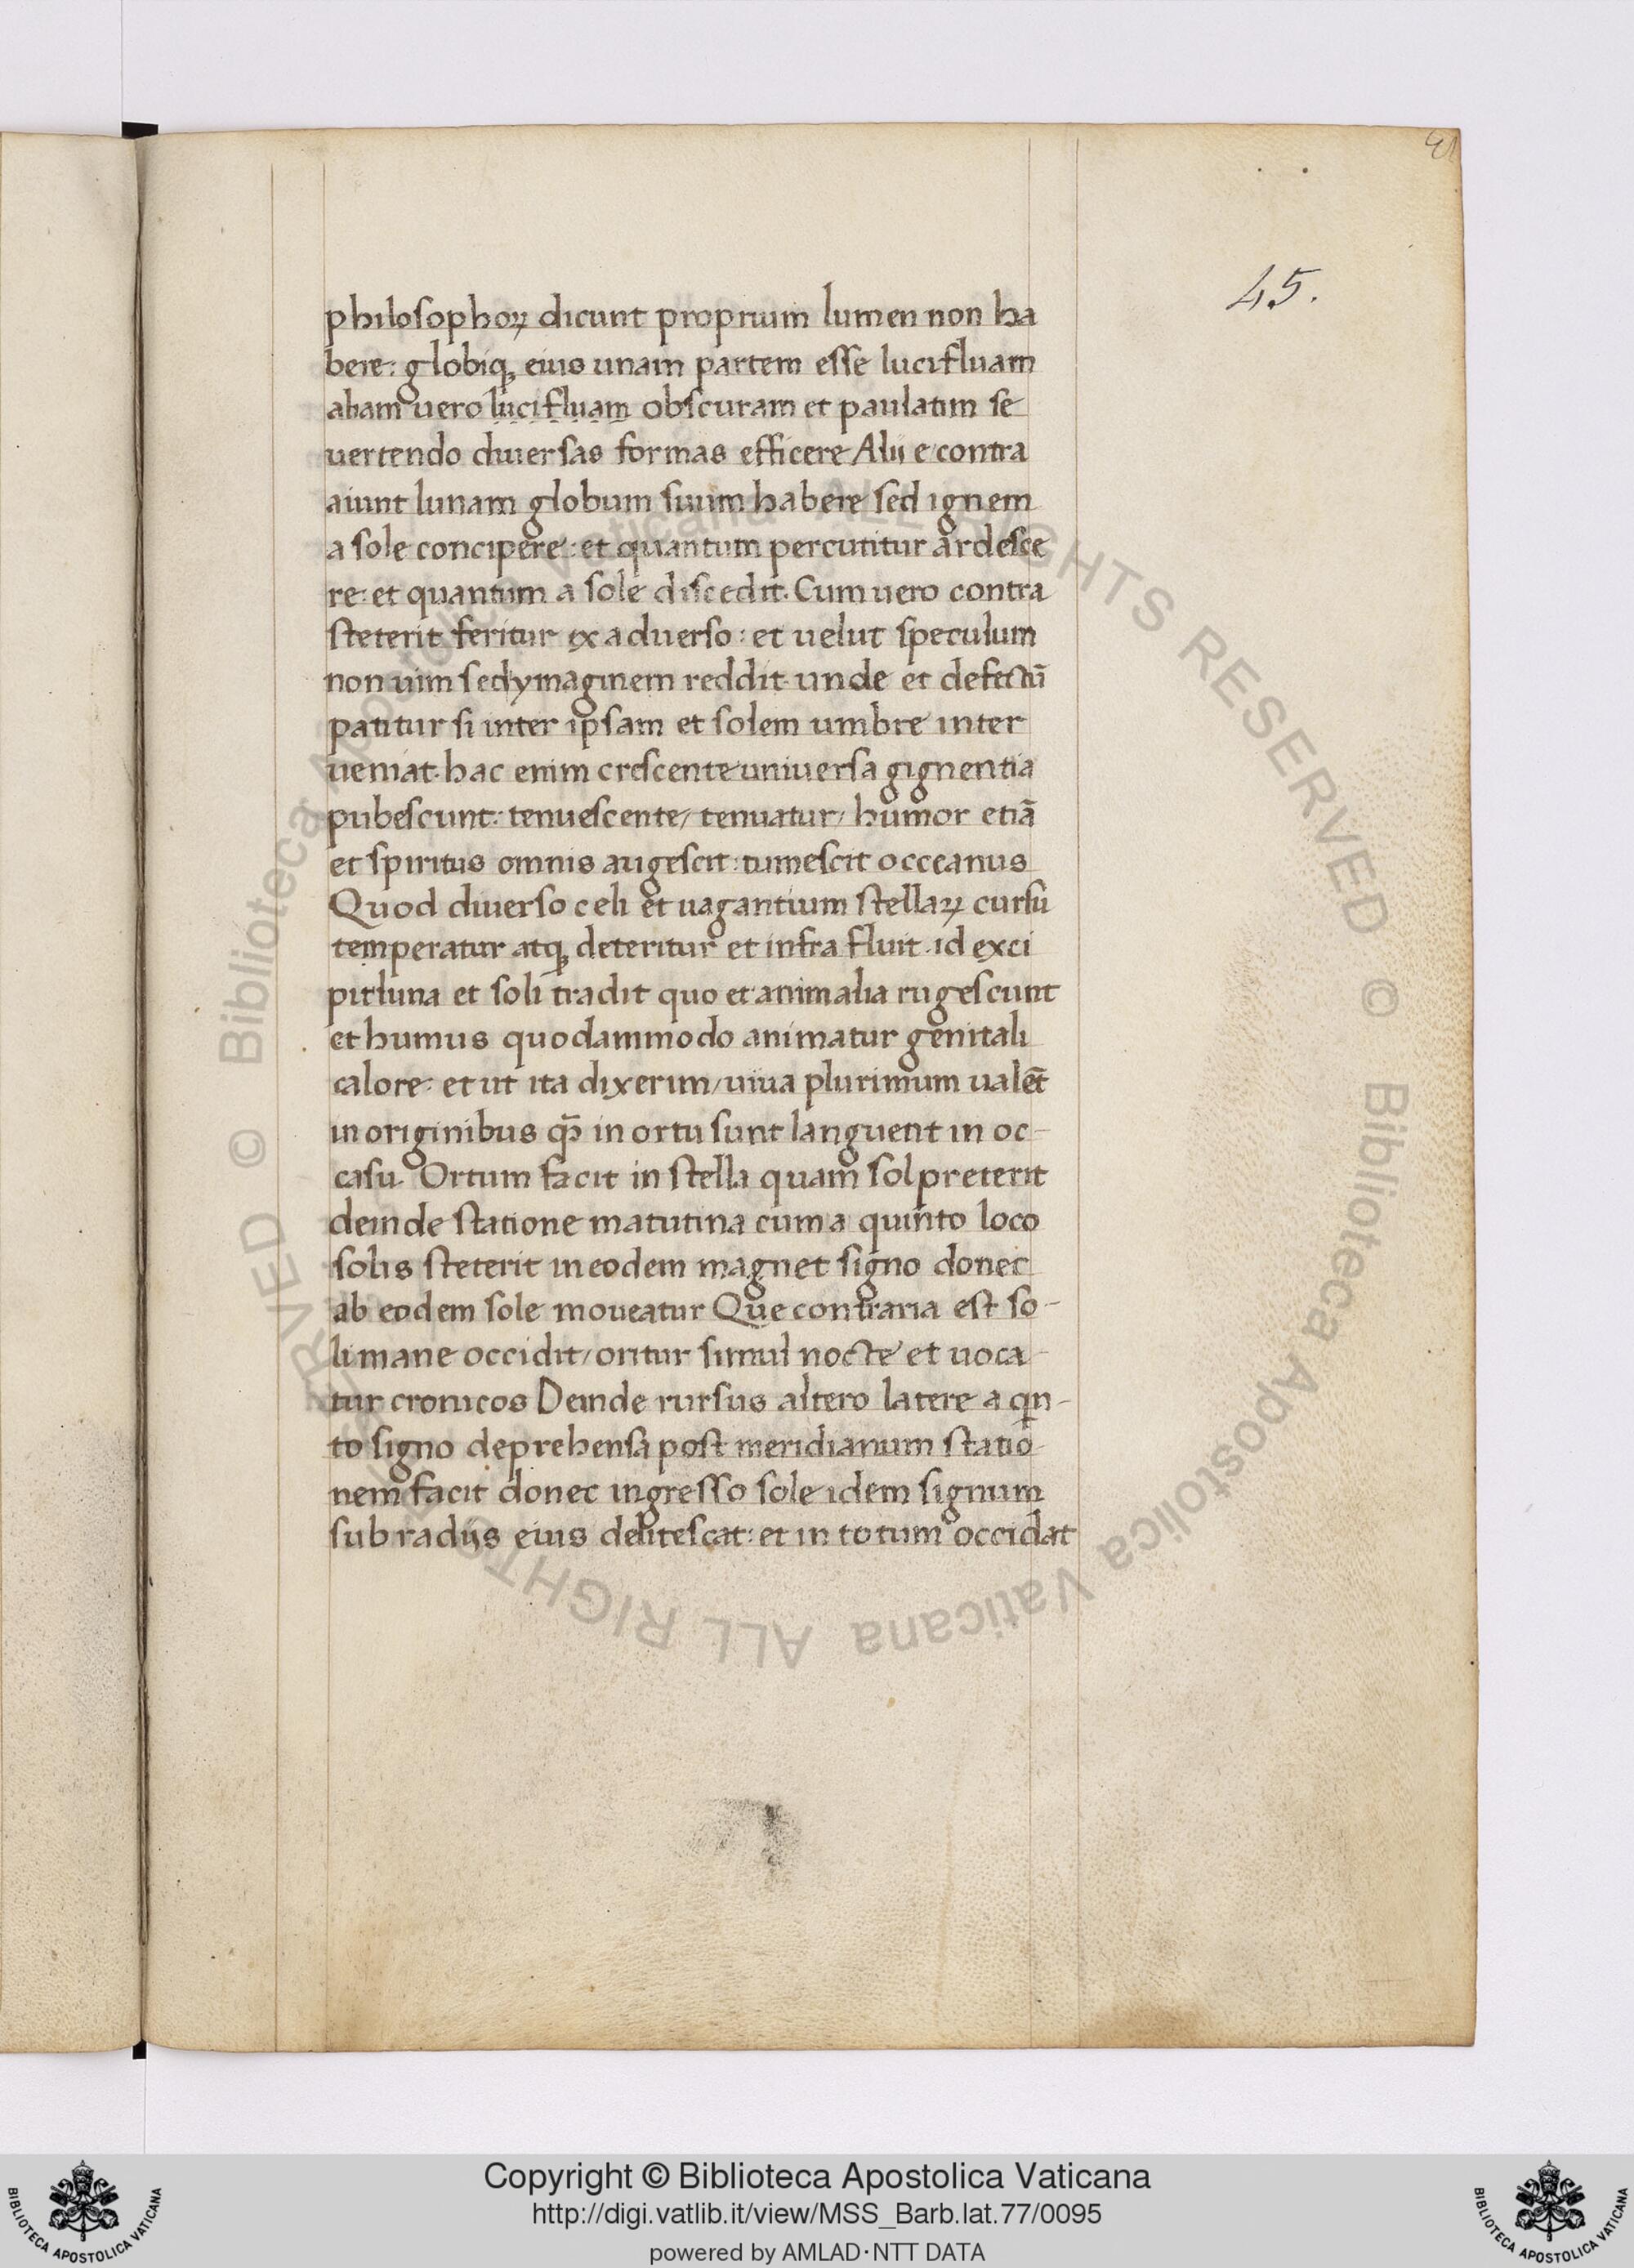 45.
philosophoꝝ dicunt proprium lumen non ha
bere: globiqꝫ eius unam partem esse lucifluam
aliam uero lucifluam obscuram et paulatim se
uertendo diuersas formas efficere Alii e contra
aiunt lunam globum suum habere sed ignem
a sole concipere: et quantum percutitur ardesce
re: et quantum a sole discedit. Cum uero contra
steterit feritur ex aduerso: et uelut speculum
non uim sed ymaginem reddit. unde et defectū
patitur si inter ipsam et solem umbre inter
ueniat. hac enim crescente uniuersa gignentia
pubescunt: tenuescente/ tenuatur/ humor etiā
et spiritus omnis augescit: tumescit occeanus
Quod diuerso celi et uagantium stellaꝝ cursu
temperatur atqꝫ deteritur et infra fluit. id exci
pit luna et soli tradit quo et animalia rugescunt
et humus quodammodo animatur genitali
calore: et ut ita dixerim/ uiua plurimum ualēt
in originibus qꝫ̄ in ortu sunt languent in oc-
casu. Ortum facit in stella quam sol preterit
deinde statione matutina cum a quinto loco
solis steterit in eodem magnet signo donec
ab eodem sole moueatur Que contraria est so-
li mane occidit/ oritur simul nocte et uoca-
tur cronicos Deinde rursus altero latere a qin-
to signo deprehensa post meridianum statio
nem facit donec ingresso sole idem signum
sub radiis eius delitescat: et in totum occidat
© Biblioteca Apostolica Vaticana ALL RIGHTS RESERVED © Biblioteca Apostolica Vaticana ALL RIGHTS RESERVED
Copyright © Biblioteca Apostolica Vaticana
http://digi.vatlib.it/view/MSS_Barb.lat.77/0095
powered by AMLAD·NTT DATA
BIBLIOTECA APOSTOLICA VATICANA
BIBLIOTECA APOSTOLICA VATICANA